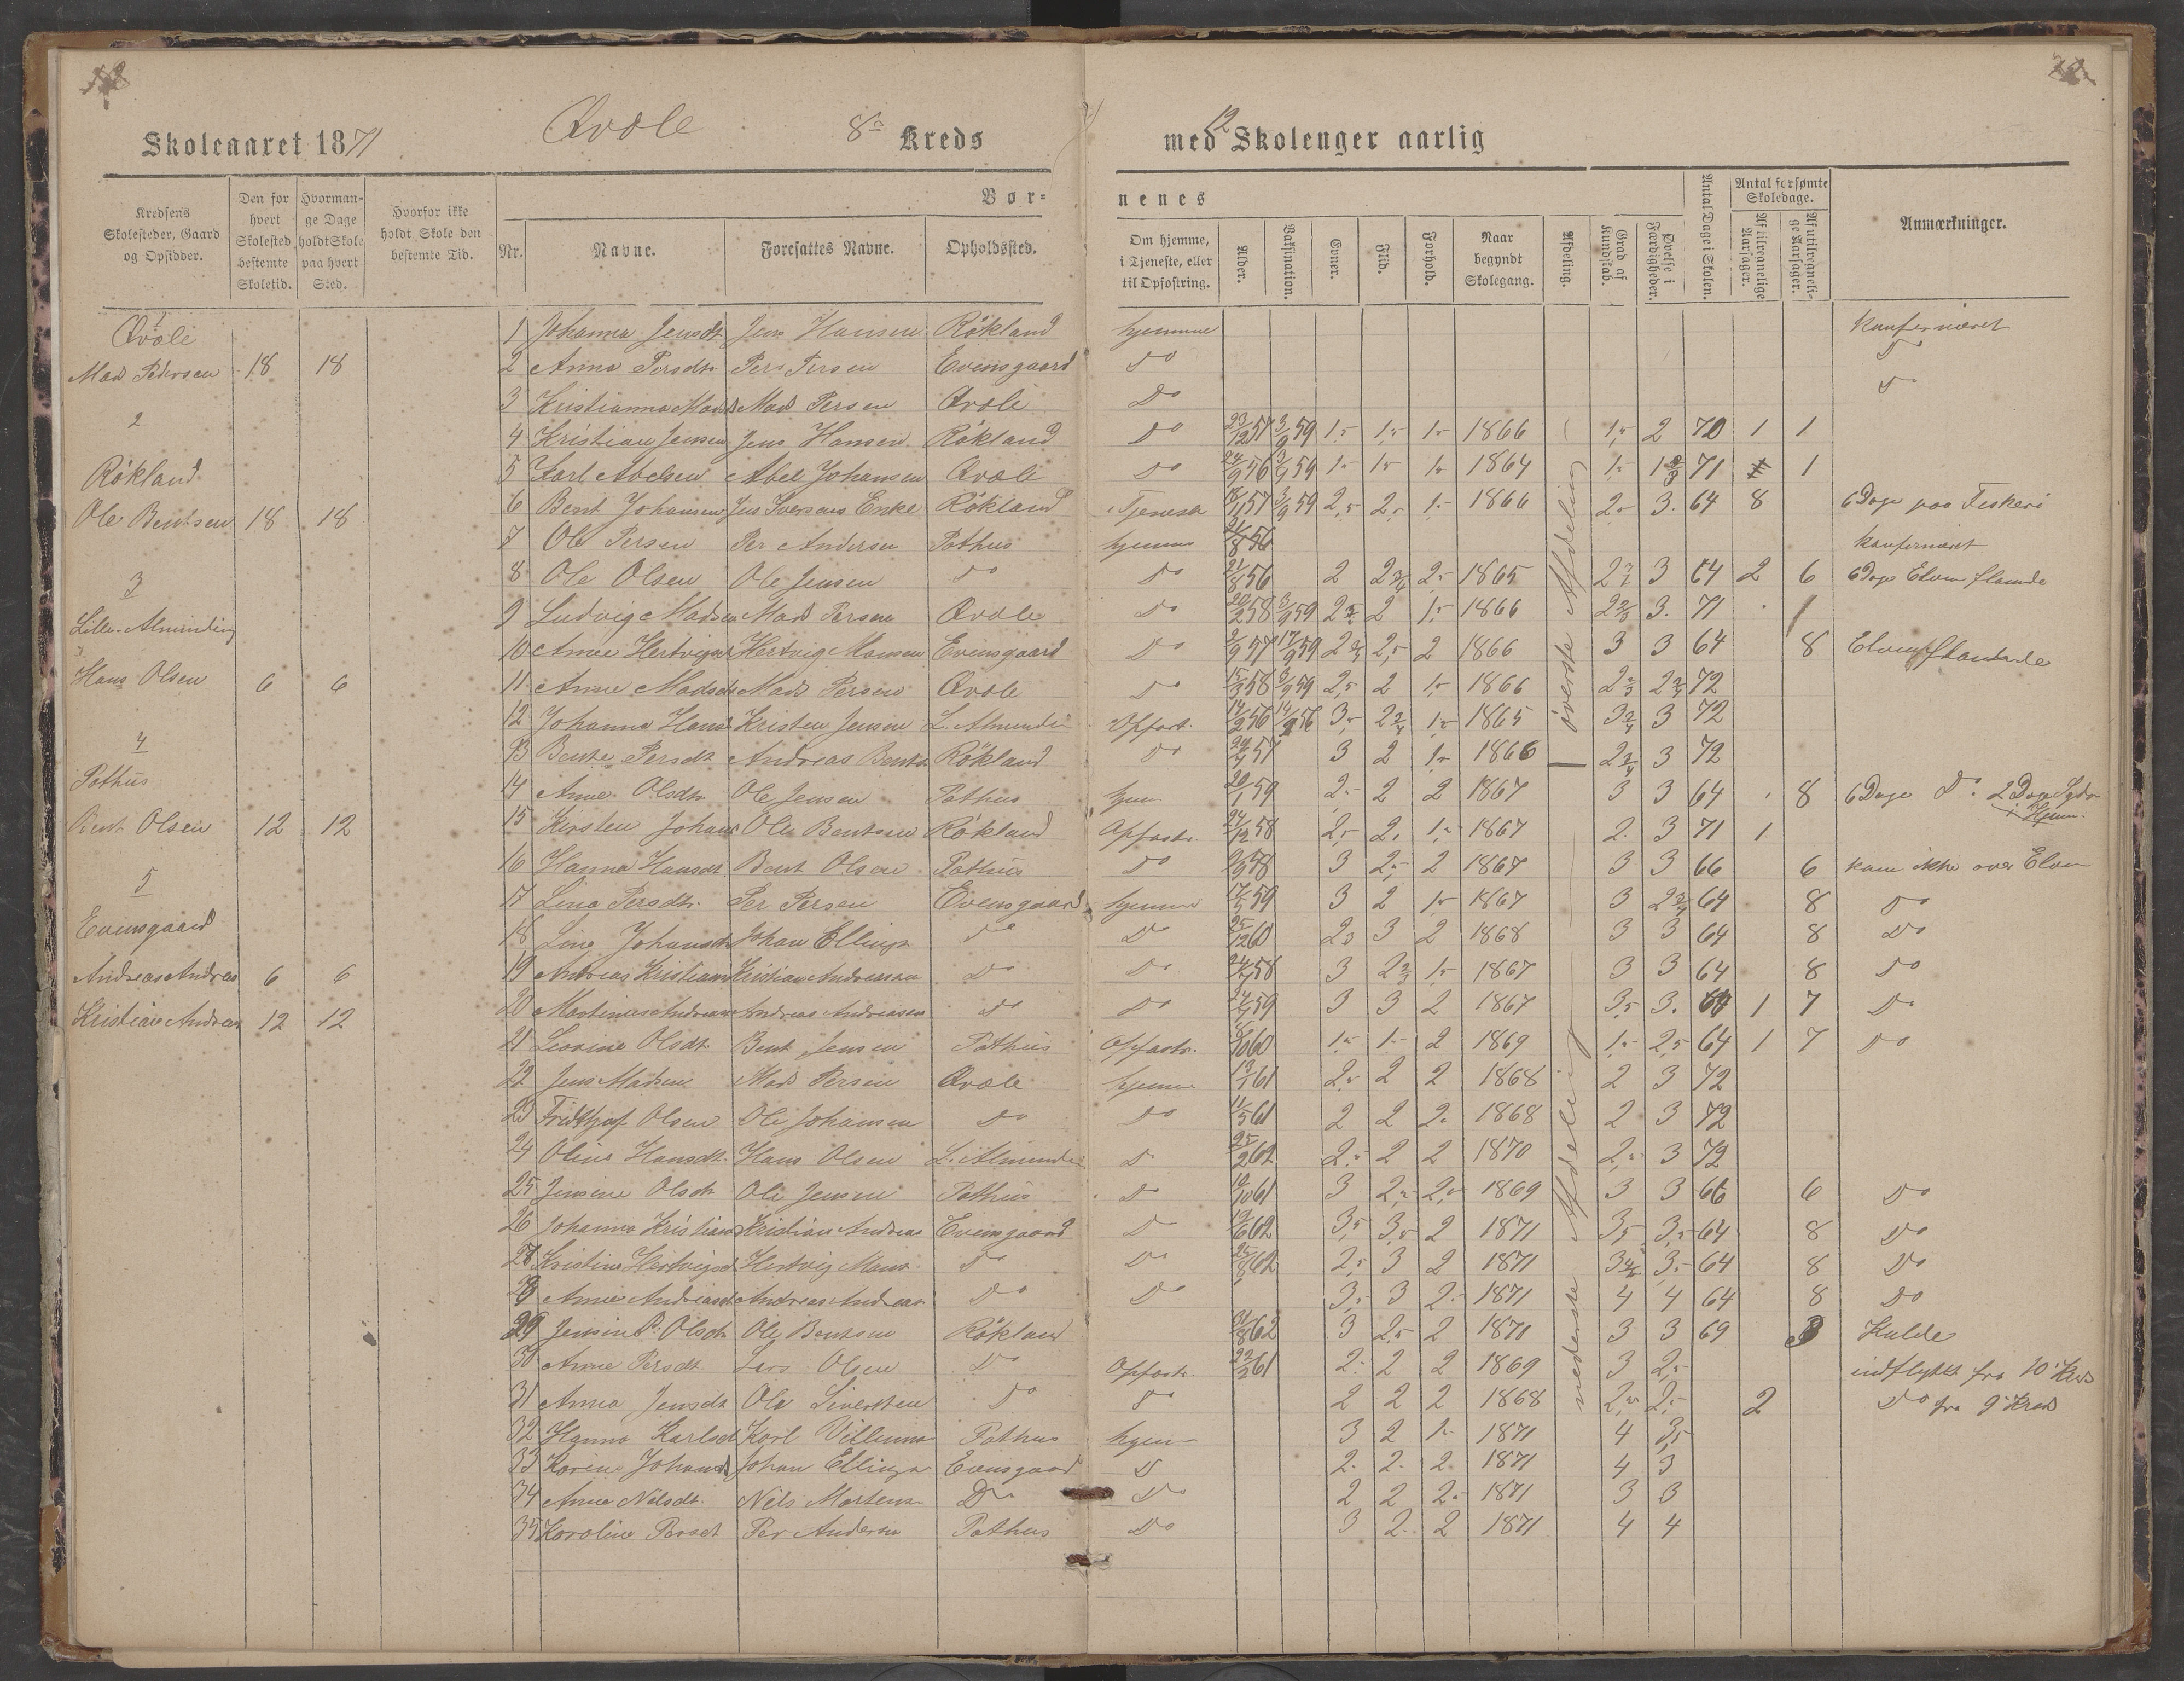 Skoleaaret 1871 Qvale 8de Kreds med 12 Skolenger aarlig
Kredsens Skolesteder, Gaard og Opsidder.
Den for hvert Skolested bestemte Skoletid.
Hvormange Dage holdt Skole paa hvert Sted.
Hvorfor ikke holdt Skole den bestemte Tid.
Børnenes
Nr.
Navne.
Foresattes Navne.
Opholdssted.
Om hjemme, i Tjeneste, eller til Opfostring.
Alder.
Vaksination.
Evner.
Flid.
Forhold.
Naar begyndt Skolegang.
Afdeling.
Grad af Kundskab.
Øvelse i Færdigheder.
Antal Dage i Skolen.
Antal forsømte Skoledage.
Af tilregnelige Aarsager.
Af utilregnelige Aarsager.
Anmærkninger.
1
Qvale
Mads Pedersen 18 18
2
Rökland
Ole Bentsen 18 18
3
Lille-Alminding
Hans Olsen 6 6
4
Pothus
Bent Olsen 12 12
5
Evensgaard
Andreas Andreas 6 6
Kristian Andreas 12 12
1 Johanna Jensdt. Jens Hansen Rökland hjemme Konfirmeret
2 Anna Persdtr. Per Persen Evensgaard Do Do
3 Kristianna Mads Mads Persen Qvale Do Do
4 Kristian Jensen Jens Hansen Rökland Do 23/12 57 3/9 59 1,5 1,5 1,5 1866 1,5 2 70 1 1
5 Karl Abelsen Abel Johansen Qvale Do 24/9 56 3/9 59 1,5 1,5 1,5 1864 1,5 71 1
6 Bent Johansen Jens Iversens Enke Rökland i Tjeneste 57 3/9 59 2,5 2,5 1,5 1866 2,5 3. 64 8 6 Dage paa Fiskeri
7 Ole Persen Per Andersen Pothus hjemme 21/8 56 Konfirmeret
8 Ole Olsen Ole Jensen Do Do 21/8 56 2 2 2/3 2,5 1865 3 64 2 6 6 Dage Elven flomde
9 Ludvig Madsen Mads Persen Qvale Do 20/2 58 3/9 59 2 1,5 1866 2 2/3 3. 71 1
10 Anne Hertvigsd Hertvig Monsen Evensgaard Do 57 17/9 59 2,5 2 1866 3 3 64 8 Elven flomde
11 Anne Madsdt Mads Persen Qvale Do 15/3 58 3/9 59 2,5 2 1,5 1866 2 2/3 72
12 Johanna Hans Kristen Jensen L. Almindi Opfost. 14/2 56 3,5 1,5 1865 3 72
13 Bente Persdt. Andreas Bents Rökland Do 57 3 2 1,5 1866 3 72
14 Anne Olsdtr. Ole Jensen Pothus hjem 20/1 59 2,5 2 2 1867 3 3 64 8 6 Dage Do 2 Dage Sygdom
15 Kirsten Johans Ole Bentsen Rökland Opfostr. 24/12 58 2,5 2. 1,5 1867 2. 3 71 1
16 Hanna Hansdt Bent Olsen Pothus Do 3 2,5 2 1867 3 3 66 6 kom ikke over Elven
17 Lina Persdtr. Per Persen Evensgaard hjemme 17/5 59 3 2 1,5 1867 3 64 8 Do
18 Line Johansdt Johan Ellings. Do Do 25/12 60 3 2 1868 3 3 64 8 Do
19 Andreas Kristians Kristian Andreassen Do Do 58 3 2 2/3 1,5 1867 3 3 64 8 Do
20 Martines Andreas Andreas Andreasen Do Do 59 3 3 2 1867 3,5 3. 64 1 7 Do
21 Leorine Olsdt. Bent Jensen Pothus Opfostr. 60 1,5 1,5 2 1869 1,5 2,5 64 1 7 Do
22 Jens Madsen Mads Persen Qvale hjemme 61 2,5 2 2 1868 2 3 72
23 Fridthjof Olsen Ole Johansen Do Do 11/5 61 2 2 2. 1868 2 3 72
24 Oline Hansdt. Hans Olsen L. Alminde Do 25/2 62 2,5 2 2 1870 2,5 3 72
25 Jensine Olsdt Ole Jensen Pothus Do 61 3 2,5 2,5 1869 3 3 66 6 Do
26 Johanna Kristians Kristian Andreas Evensgaard Do 62 3,5 3,5 2 1871 3,5 3,5 64 8 Do
27 Kristine Hertvigsd Hertvig Mons. Do Do 25/8 62 2,5 3 2 1871 3,5 64 8 Do
28 Anne Andreasdt Andreas Andreas. Do Do 3,5 3 2,5 1871 4 4 64 8 Do
29 Jensine P. Olsdt Ole Bentsen Rökland 31/8 62 3 2,5 2 1871 3 3 69 3 Kulde
30 Anne Persdt Lars Olsen Do Opfostr. 61 2,5 2 2 1869 3 2,5 indflyttet fra 10 Kreds
31 Anna Jensdt Ole Sivertsen Do Do 2 2 2 1868 2,5 2,5 2 Do fra 9 Kreds
32 Hanna Karlsdt Karl Villums Pothus hjem 3 2 1,5 1871 4 3,5
33 Karen Johansd Johan Ellings Evensgaard D 2. 2. 2 1871 4 3
34 Anne Nilsdt. Nils Mortens. Do Do 2 2 2,5 1871 3 3
35 Karoline Persdt Per Andersn Pothus Do 3 2. 2 1871 4 4
øverste Afdeling
nederste Afdeling